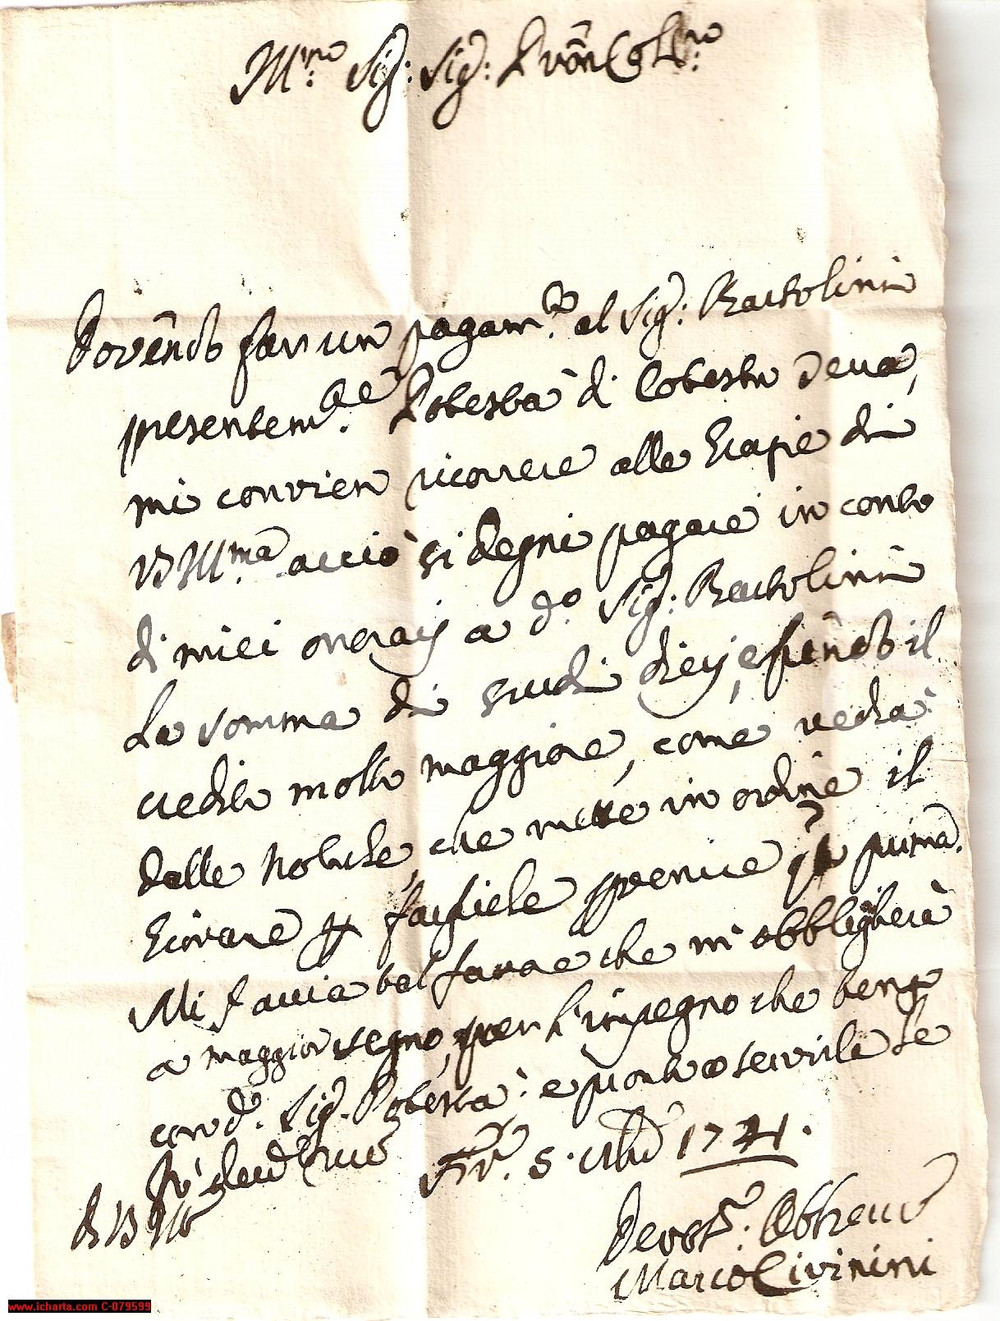 Ill.mo Sig: Sig: Pron Col:mo
Dovendo far un pagam.to al Sig: Bartolini
presentem.te Potestà di
mi convien ricorrere alle grazie di
V.S. Ill.ma acciò si degni pagare in conto
di miei a d.o Sig: Bartolini
La somma di scudi dieci, essendo il
credito molto maggiore, come vedrà
dalle Notule, che mette in ordine il
Giovane p fargliele pervenire prima.
Mi faccia tal favore che mi obbligherà
a maggior segno, per l'impegno che tengo
con d.o Sig. Potestà: e pronto a servirla Le
fo
di V.S. Ill.ma Fir.e 5. 1771.
Devot.o Obb. Serv.e
Marco Civinini
www.icharta.com C-079599